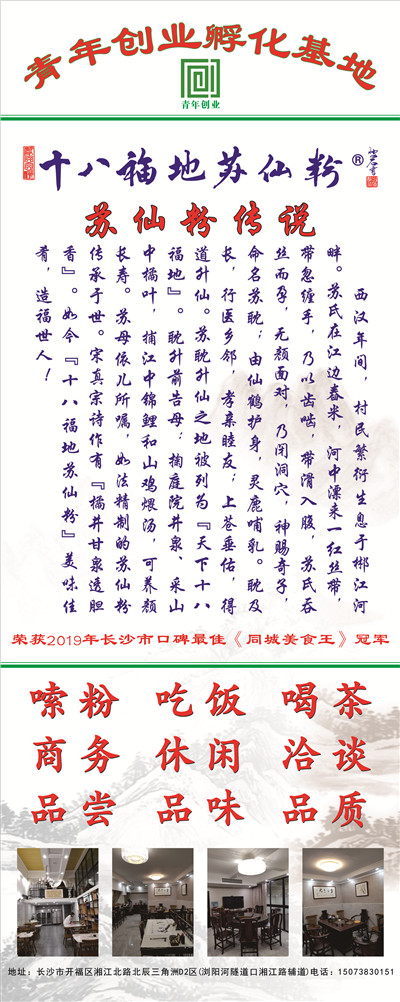 青年创业孵化基地
青年创业
十八福地苏仙粉®
苏仙粉传说
西汉年间，村民繁衍生息于郴江河
畔。苏氏在江边舂米，河中漂来一红丝带，
带忽缠手，乃以齿啮，带滑入腹，苏氏吞
丝而孕，无颜面对，乃闭洞穴，神赐奇子，
命名苏耽；由仙鹤护身，灵鹿哺乳。耽及
长，行医乡邻，孝亲睦友；上苍垂佑，得
道升仙。苏耽升仙之地被列为『天下十八
福地』。耽升前告母：掬庭院井泉、采山
中橘叶，捕江中锦鲤和山鸡煨汤，可养颜
长寿。苏母依儿所嘱，如法精制的苏仙粉
传承于世。宋真宗诗作有『橘井甘泉透胆
香』。如今『十八福地苏仙粉』美味佳
肴，造福世人！
荣获2019年长沙市口碑最佳《同城美食王》冠军
嗦粉 吃饭 喝茶
商务 休闲 洽谈
品尝 品味 品质
地址：长沙市开福区湘江北路北辰三角洲D2区(浏阳河隧道口湘江路辅道)电话：15073830151